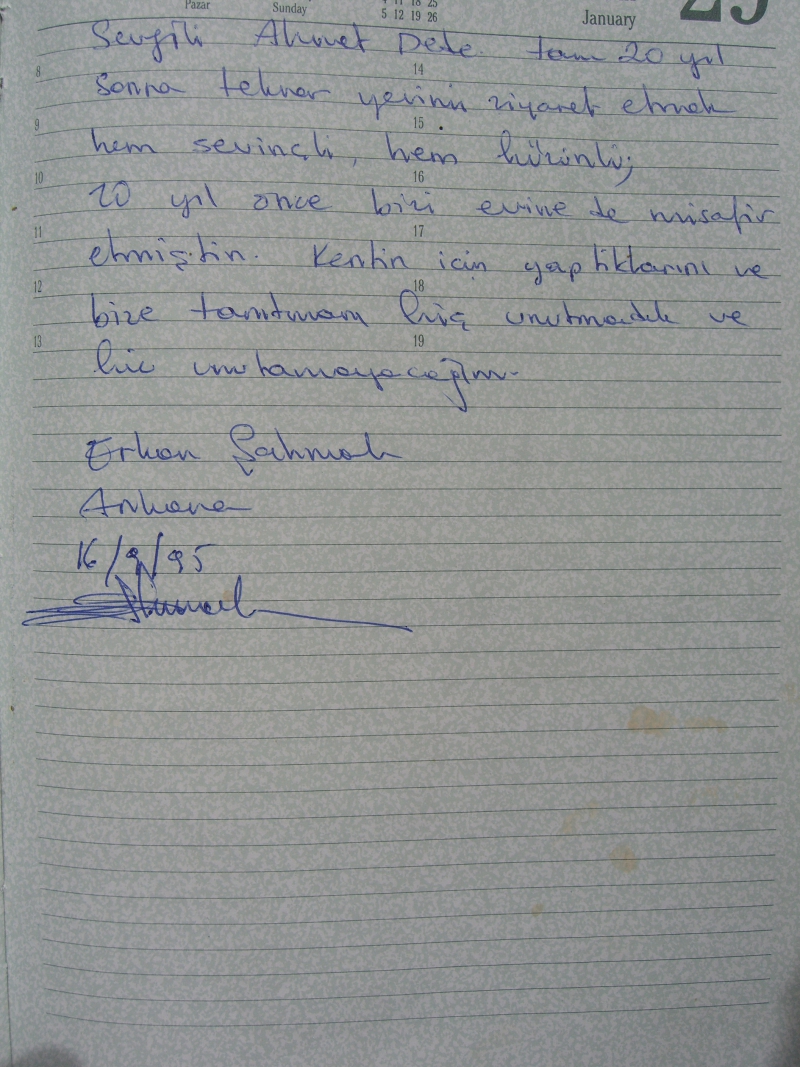 Pazar Sunday
4 11 18 25
5 12 19 26
January
Sevgili Ahmet Dede. tam 20 yıl
8 14
Sonra tekrar yerinin ziyaret etmek
9 15
hem sevinçli, hem hüzünlü;
10 16
20 yıl önce bizi evine de misafir
11 17
etmiştin. Kentin için yaptıklarını ve
12 18
bize tanıtmanı hiç unutmadık ve
13 19
hiç unutamayacağım.
Erkan
Ankara
16/9/95